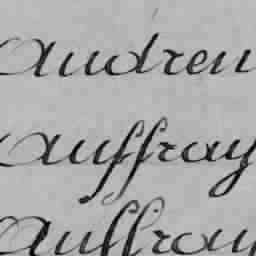 Audren
Auffray
Auffray